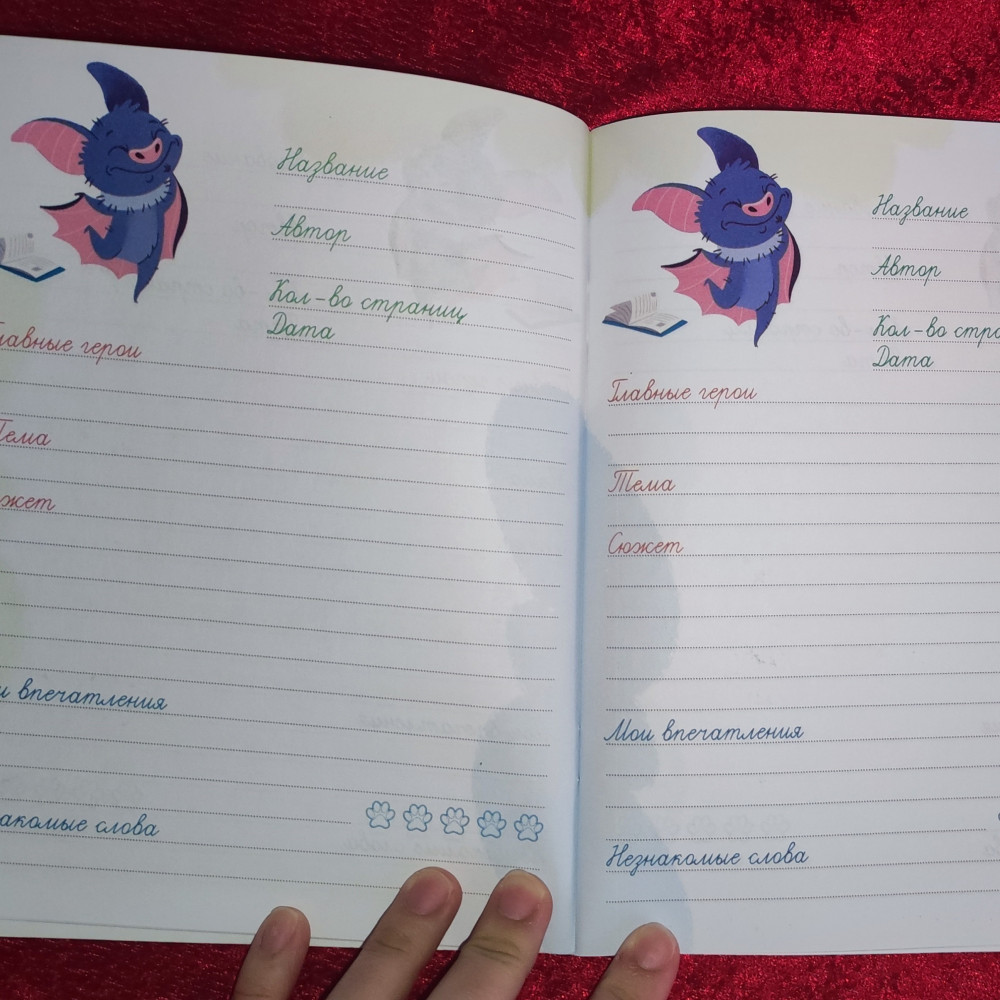 Название
Автор
Кол-во страниц
Дата
лавные герои
Тема
жет
и впечатления
акомые слова
Название
Автор
Кол-во стра
Дата
Главные герои
Тема
Сюжет
Мои впечатления
Незнакомые слова